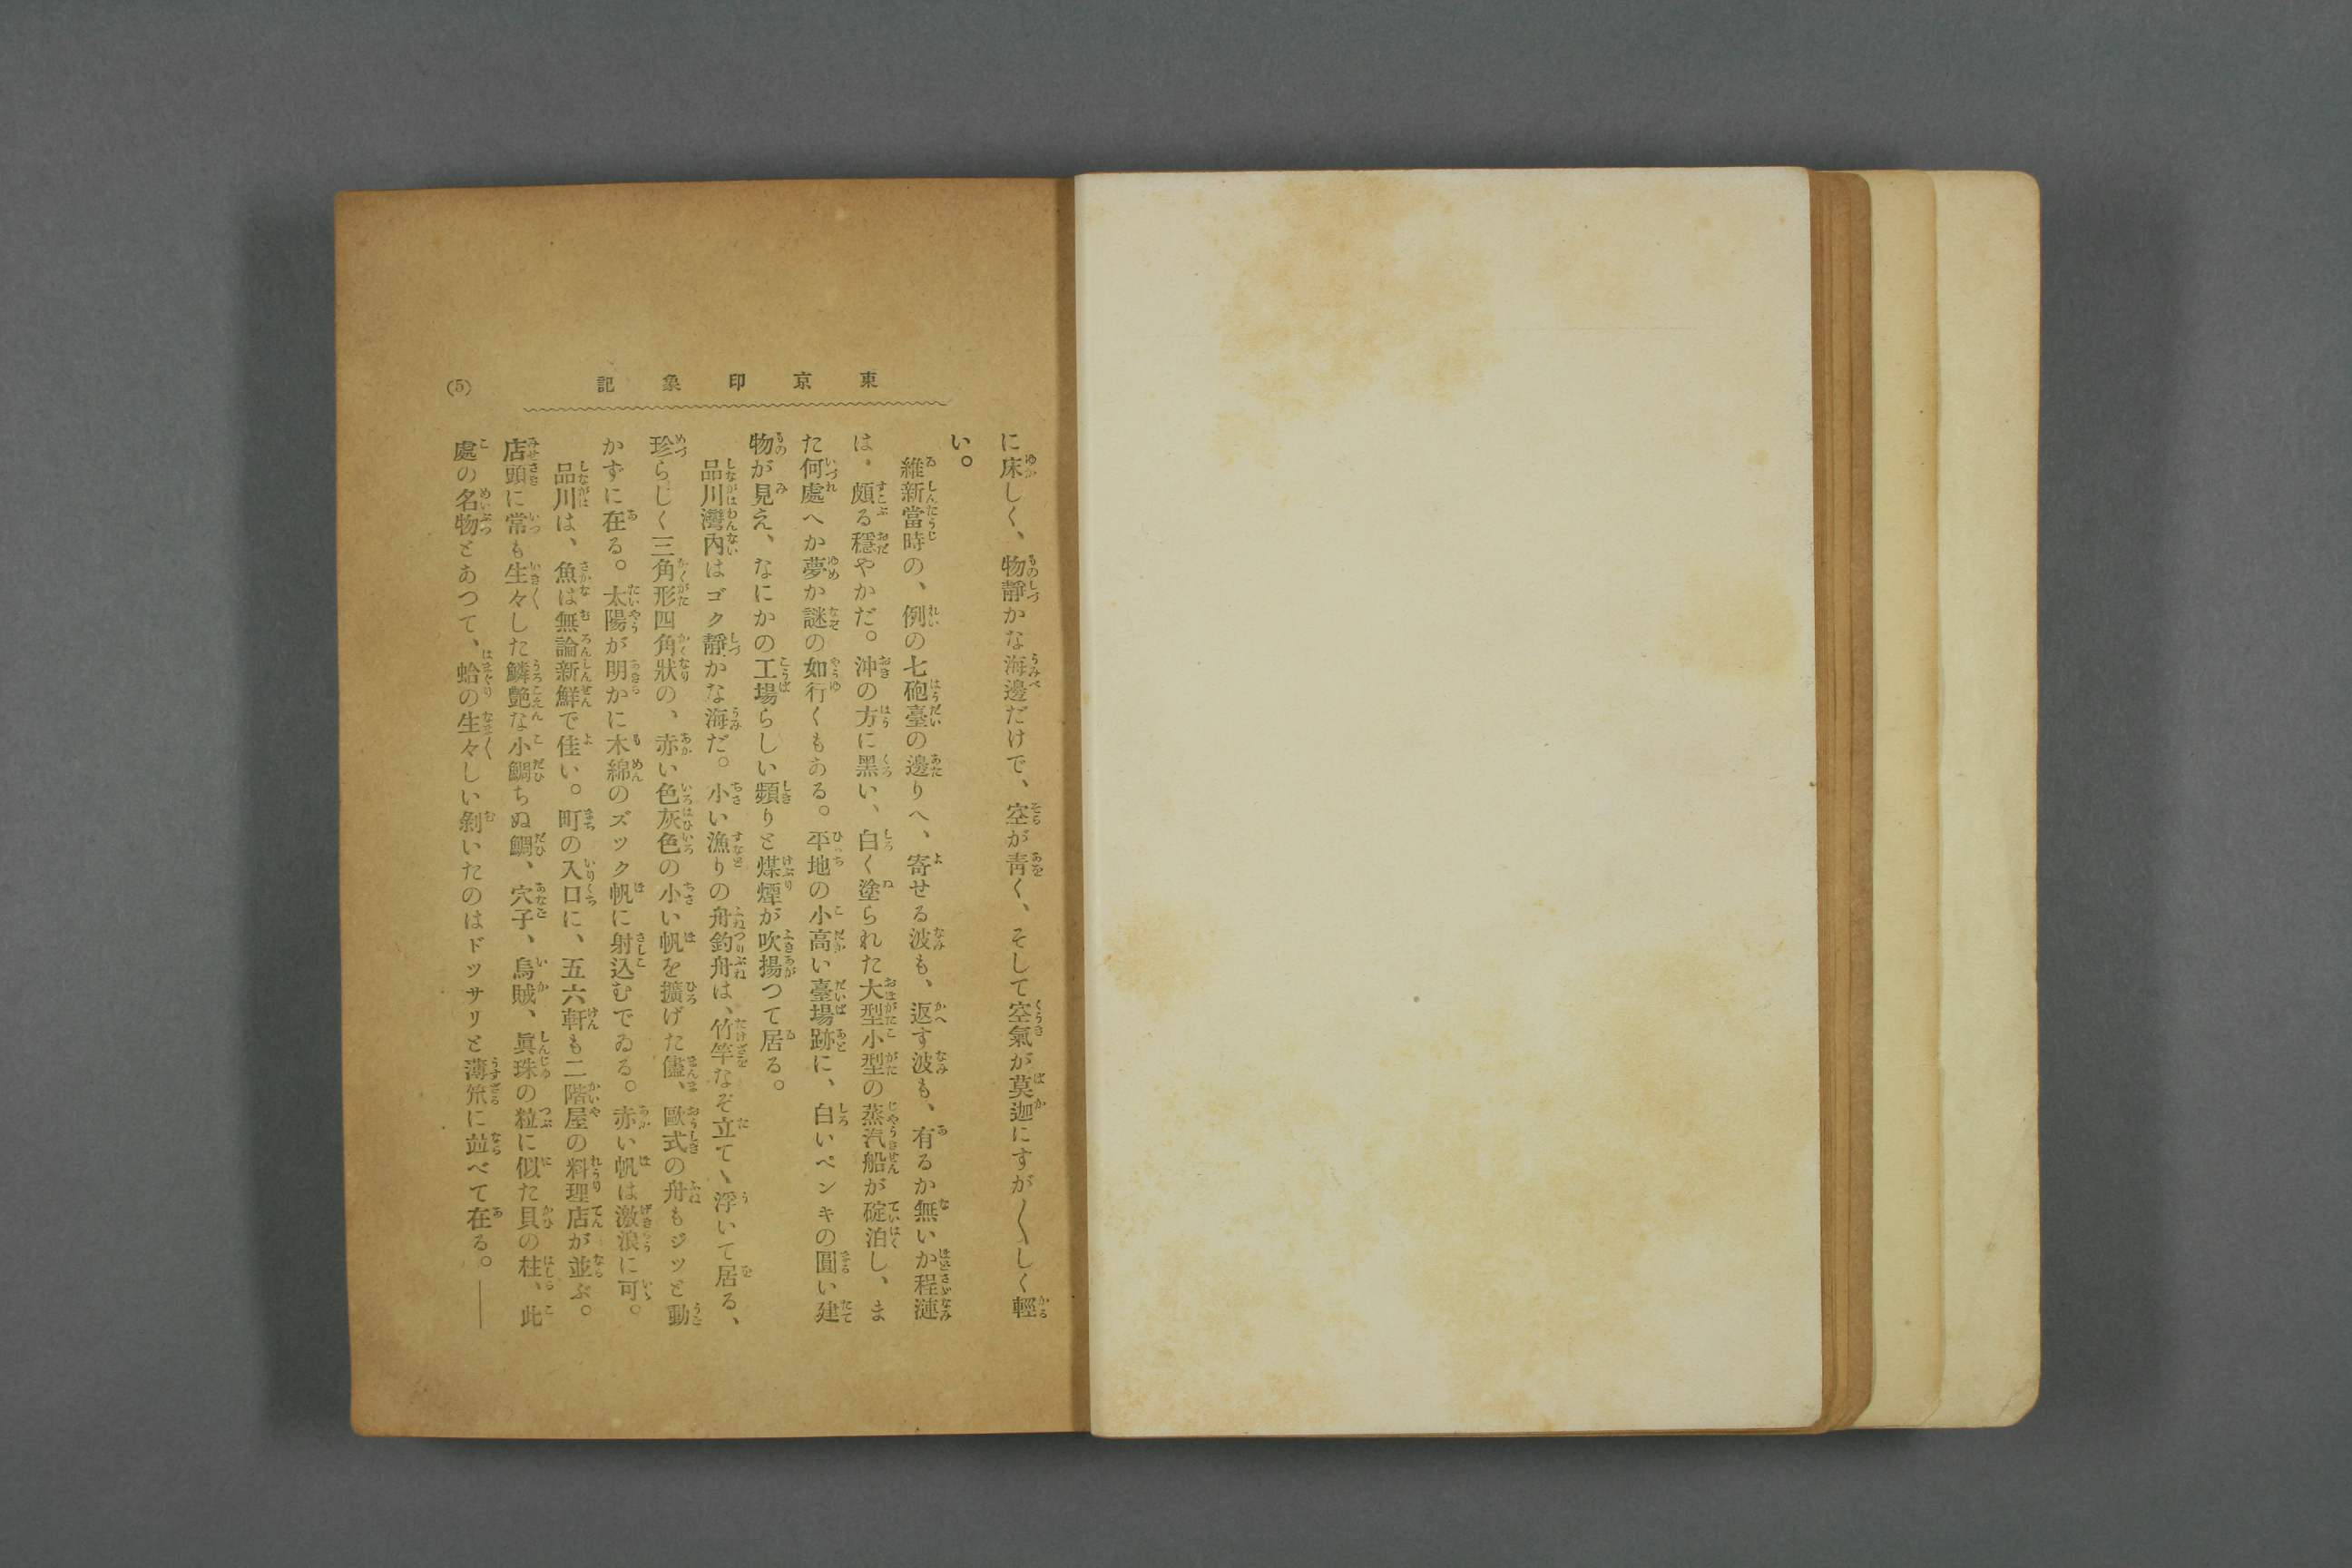 東京印象記
(5)
に床しく、物靜かな海邊だけで、空が靑く、そして空氣が莫迦にすが〱しく輕
い。
維新當時の、例の七砲臺の邊りへ、寄せる波も、返す波も、有るか無いか程漣
は・頗る穩やかだ。沖の方に黑い、白く塗られた大型小型の蒸汽船が碇泊し、ま
た何處へか夢か謎の如行くもある。平地の小高い臺場跡に、白いペンキの圓い建
物が見え、なにかの工場らしい頻りと煤煙が吹揚つて居る。
品川灣內はゴク靜かな海だ。小い漁りの舟釣舟は、竹竿なぞ立てゝ浮いて居る、
珍らじく三角形四角狀の、赤い色灰色の小い帆を擴げた儘、歐式の舟もジッと動
かずに在る。太陽が明かに木綿のズック帆に射込むでゐる。赤い帆は激浪に可。
品川は、魚は無論新鮮で佳い。町の入口に、五六軒も二階屋の料理店が並ぶ。
店頭に常も生々した鱗艶な小鯛ちぬ鯛、穴子、烏賊、眞珠の粒に似た貝の柱、此
處の名物とあつて、蛤の生々しい剝いたのはドッサリと薄笊に並べて在る。――